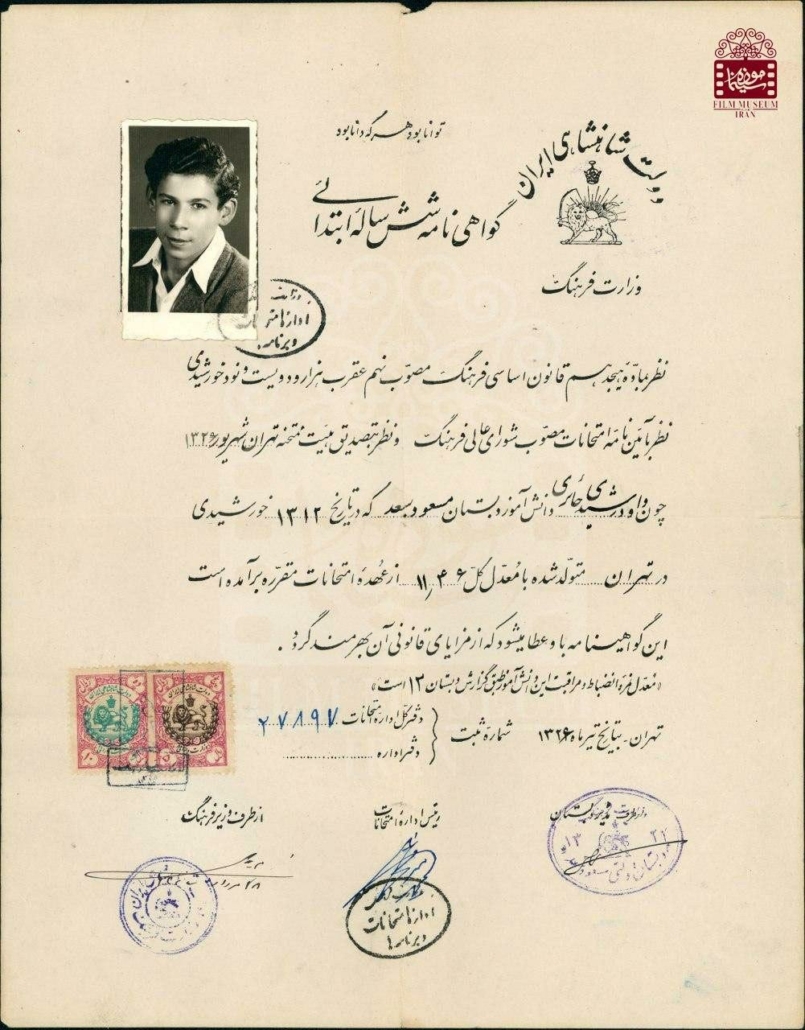 موزه سینما
FILM MUSEUM
IRAN
توانا بود هر که دانا بود
دولت شاهنشاهی ایران
گواهی نامه شش ساله ابتدائی
وزارت فرهنگ
نظر بمادّه هیجدهم قانون اساسی فرهنگ مصوّب نهم عقرب هزار و دویست و نود خورشیدی
نظر بآئین نامه امتحانات مصوب شورای عالی فرهنگ و نظر بتصدیق هیئت ممتحنه تهران شهریور ۱۳۲۶
چون داود رشیدی حائری دانش آموز دبستان مسعود سعد که در تاریخ ۱۳۱۲ خورشیدی
در تهران متولّد شده با مُعدّل کلّ ۱۱٫۴۶ از عُهدهٔ امتحانات مقرّره برآمده است
این گواهینامه باو عطا میشود که از مزایای قانونی آن بهرمند گردد.
«مُعدّل نمرهٔ انضباط و مراقبت این دانش آموز طبق گزارش دبستان ۱۳ است»
تهران - بتاریخ تیر ماه ۱۳۲۶ شمارهٔ ثبت
دفتر کل ادارهٔ امتحانات ۲۷۸۹۷
دفتر اداره
از طرف وزیر فرهنگ
رئیس ادارهٔ امتحانات
از طرف مدیر دبستان
۲۸ مرداد
وزارت فرهنگ
ادارهٔ امتحانات
و برنامه ها